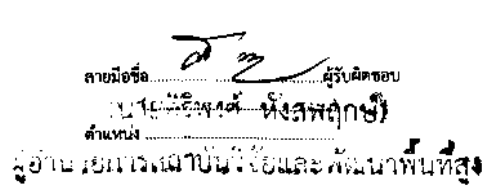 ลายมือชื่อ..........................ผู้รับผิดชอบ
(นายศิริพงศ์ หังสพฤกษ์)
ตำแหน่ง ..........................
ผู้อำนวยการสถาบันวิจัยและพัฒนาพื้นที่สูง